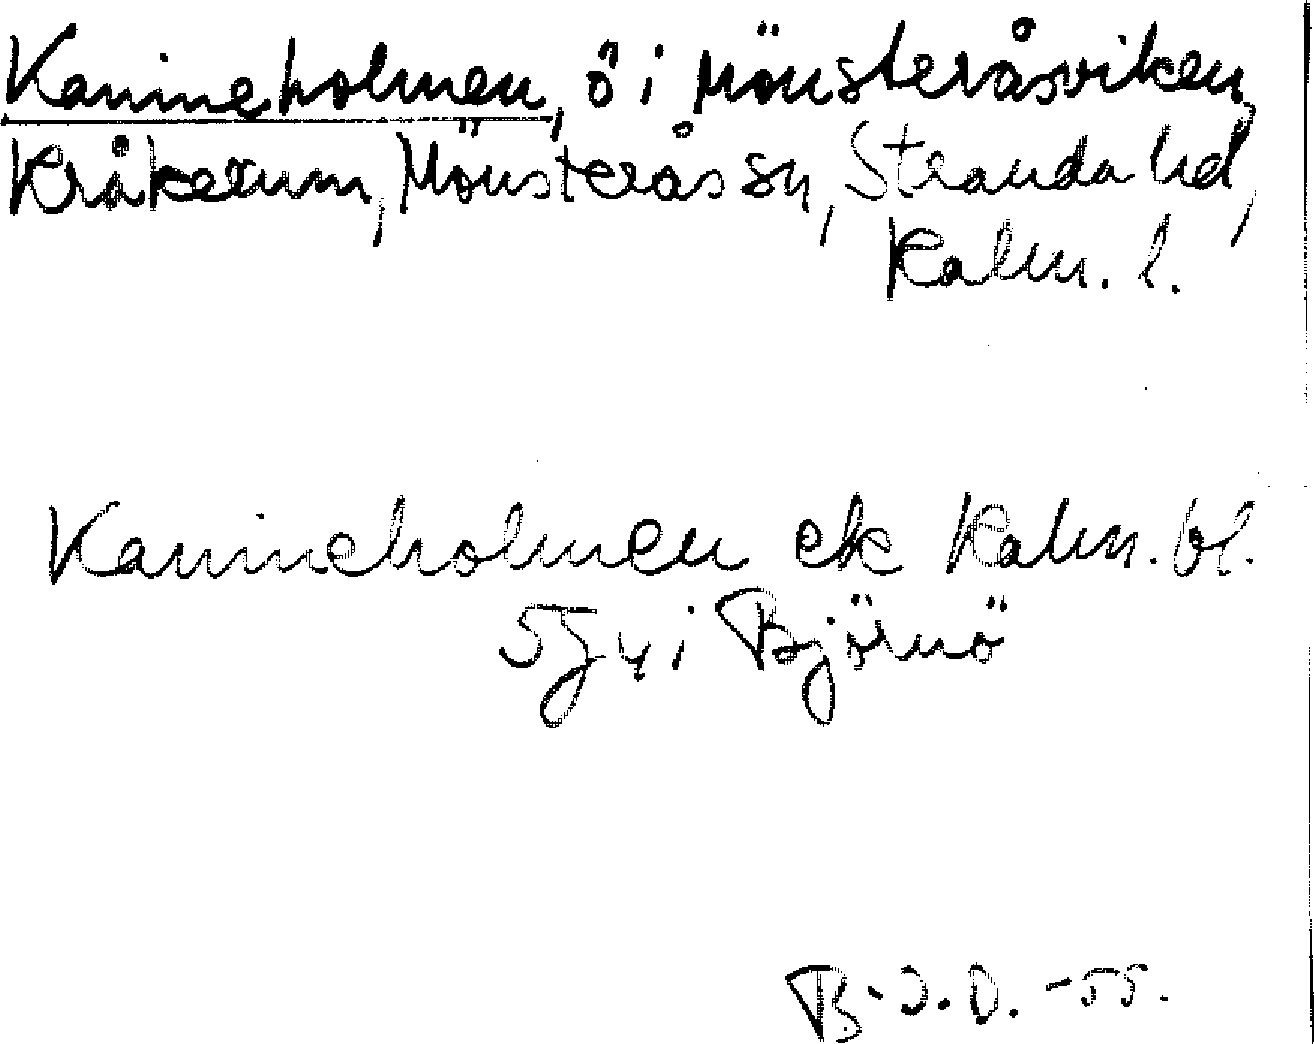 Kanineholmen, ö i Mönsteråsviken,
Kråkerum, Mönsterås sn, Stranda hd,
Kalm. l.
Kanineholmen ek Kalm. bl.
5J4 i Björnö
B-J.D. -55.